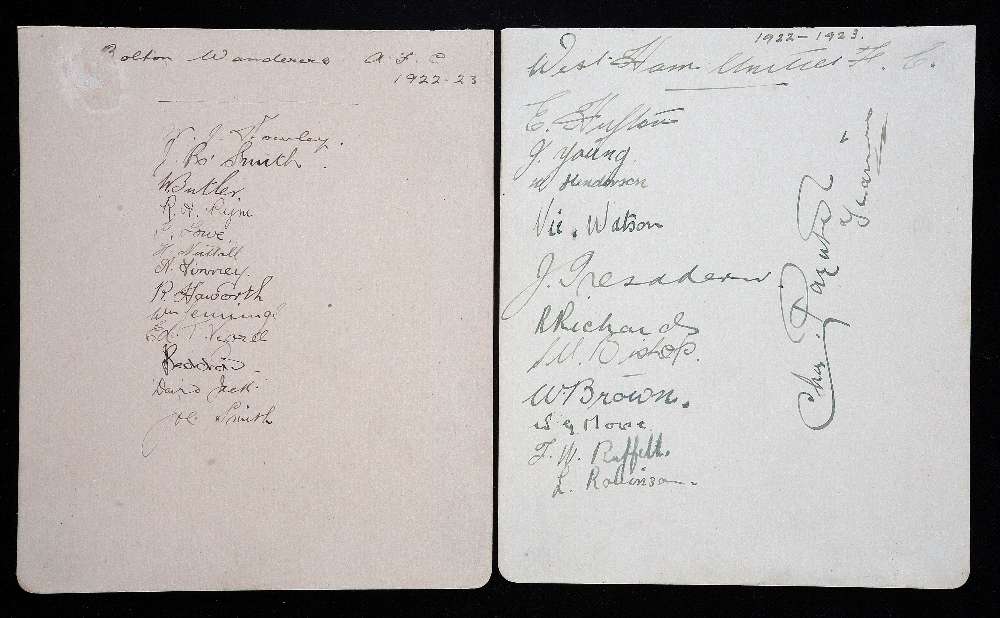 Bolton Wanderers A. F. C
1922-23
J. R. Smith
W Butler
R. H. Pym
Lowe
Nuttall
H. Finney.
R. Haworth
Wm Jennings
Ed. T. Vizard
David Jack
Joe Smith
1922-1923.
West Ham United F. C.
E. Hufton
J. Young
W Henderson
Vic. Watson
J. Tresadern
R Richards
S. M. Bishop.
W Brown.
W G Moore
J. W. Ruffell.
L. Robinson.
Chas. Paynter
Trainer